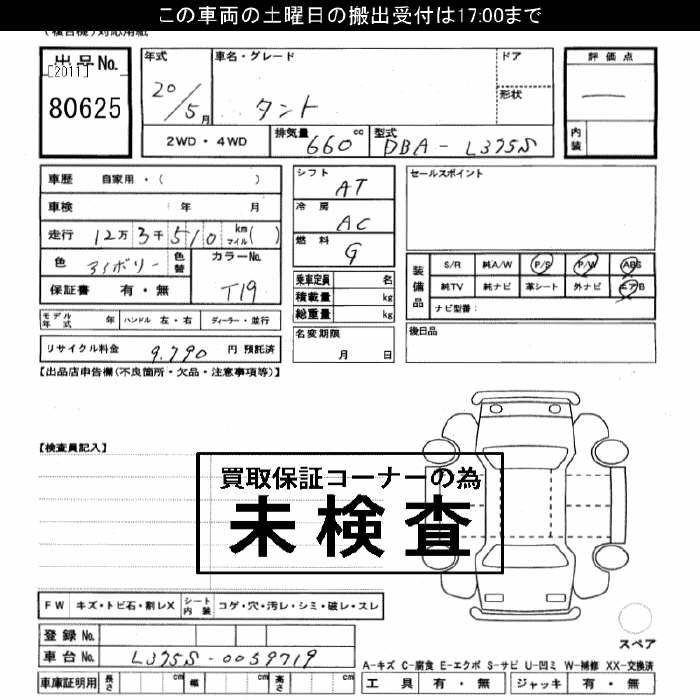 この車両の土曜日の搬出受付は17:00まで
(複合機)対応用紙
出品No.
[2011]
80625
年式 車名・グレード ドア
20/5月 タント 形状
2WD・4WD 排気量 660 cc 型式 DBA-L375S
評価点
一
内装
車歴 自家用・( )
車検 年 月
走行 12万3千510 km マイル( )
色 アイボリー 色替 カラーNo. T19
保証書 有・無
モデル年式 年 ハンドル 左・右 ディーラー・並行
リサイクル料金 9,790 円 預託済
シフト AT
冷房 AC
燃料 G
乗車定員 名
積載量 kg
総重量 kg
名変期限
月 日
セールスポイント
装備品 S/R 純A/W P/S P/W ABS
純TV 純ナビ 革シート 外ナビ エアB
ナビ型番:
後日品
【出品店申告欄(不良箇所・欠品・注意事項等)】
【検査員記入】
買取保証コーナーの為
未検査
FW キズ・トビ石・割レX シート内装 コゲ・穴・汚レ・シミ・破レ・スレ
登録No.
車台No. L375S-0059719
車庫証明用 長さ cm 幅 cm 高さ cm
スペア
A-キズ C-腐食 E-エクボ S-サビ U-凹ミ W-補修 XX-交換済
工具 有・無 ジャッキ 有・無